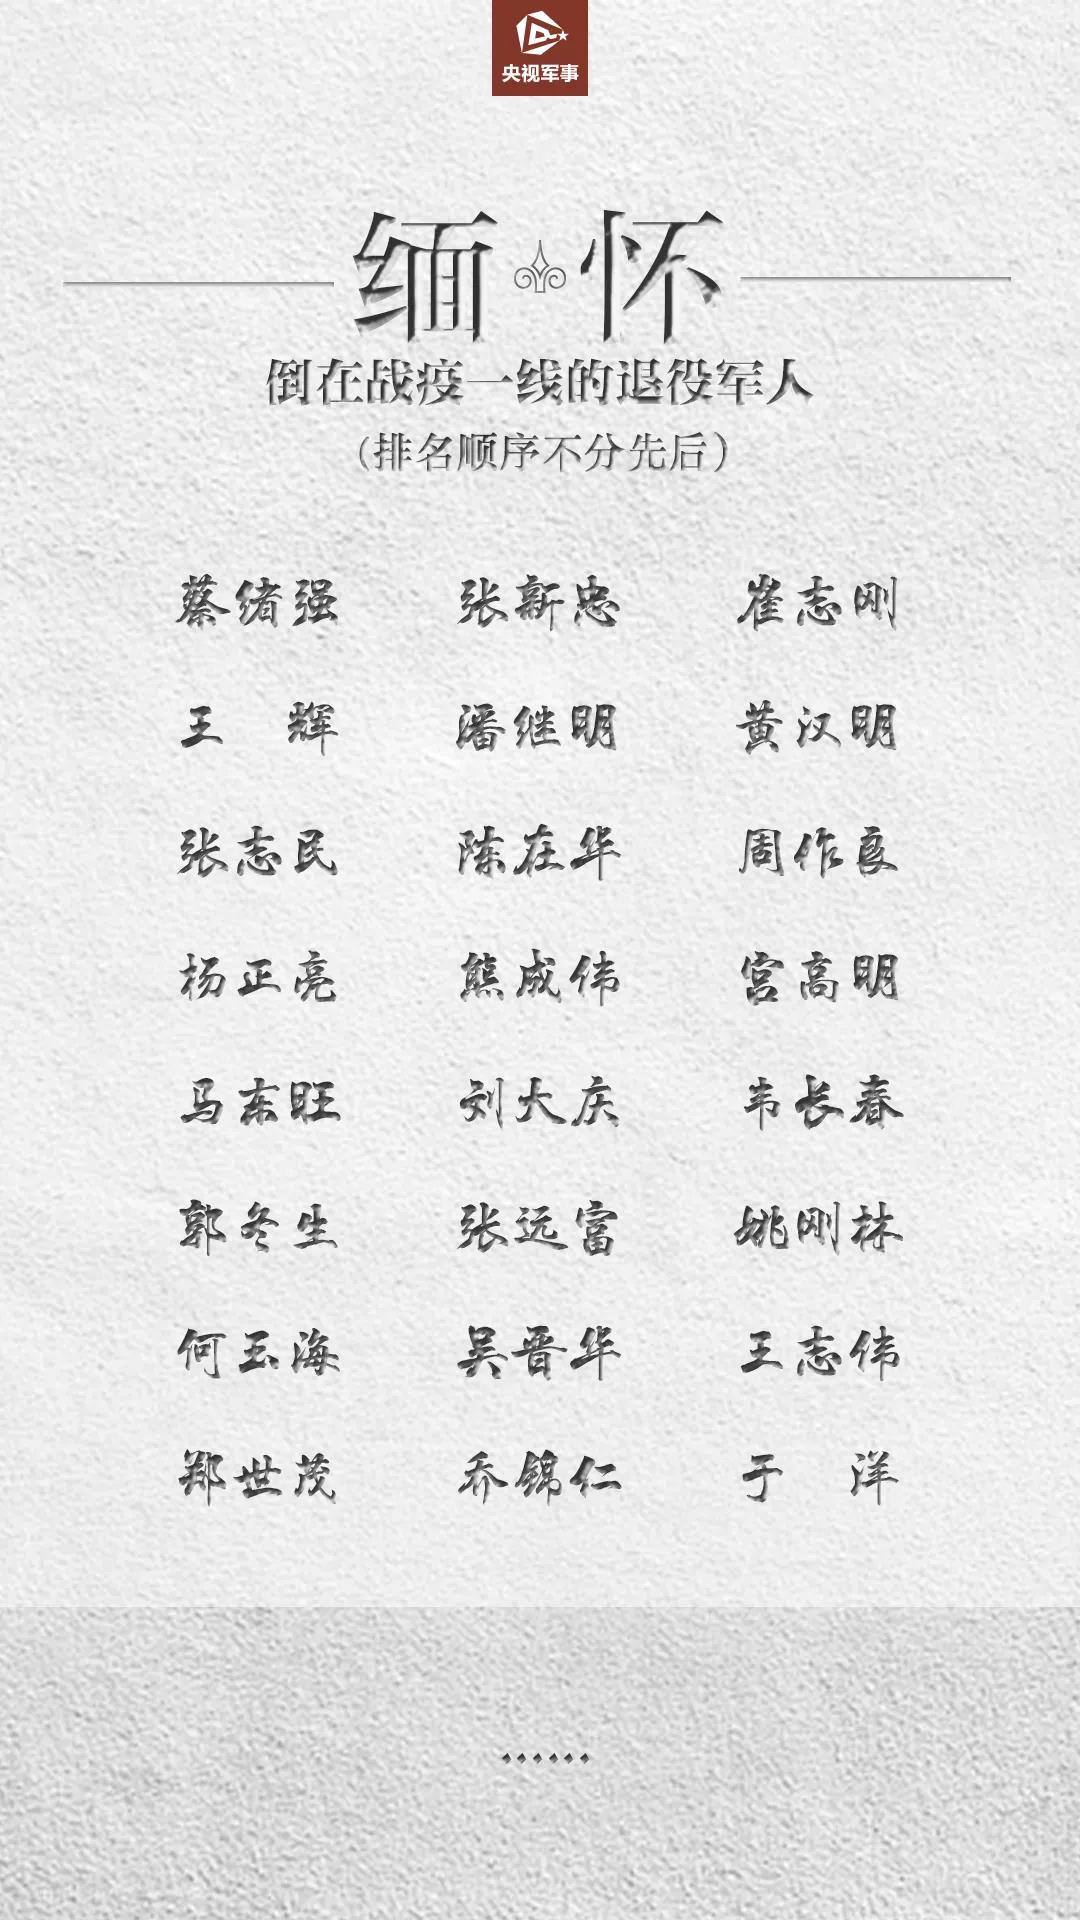 央视军事
缅怀
倒在战疫一线的退役军人
（排名顺序不分先后）
蔡绪强 张新忠 崔志刚
王 辉 潘继明 黄汉明
张志民 陈在华 周作良
杨正亮 熊成伟 宫高明
马东旺 刘大庆 韦长春
郭冬生 张远富 姚刚林
何玉海 吴晋华 王志伟
郑世茂 乔锦仁 于 洋
······